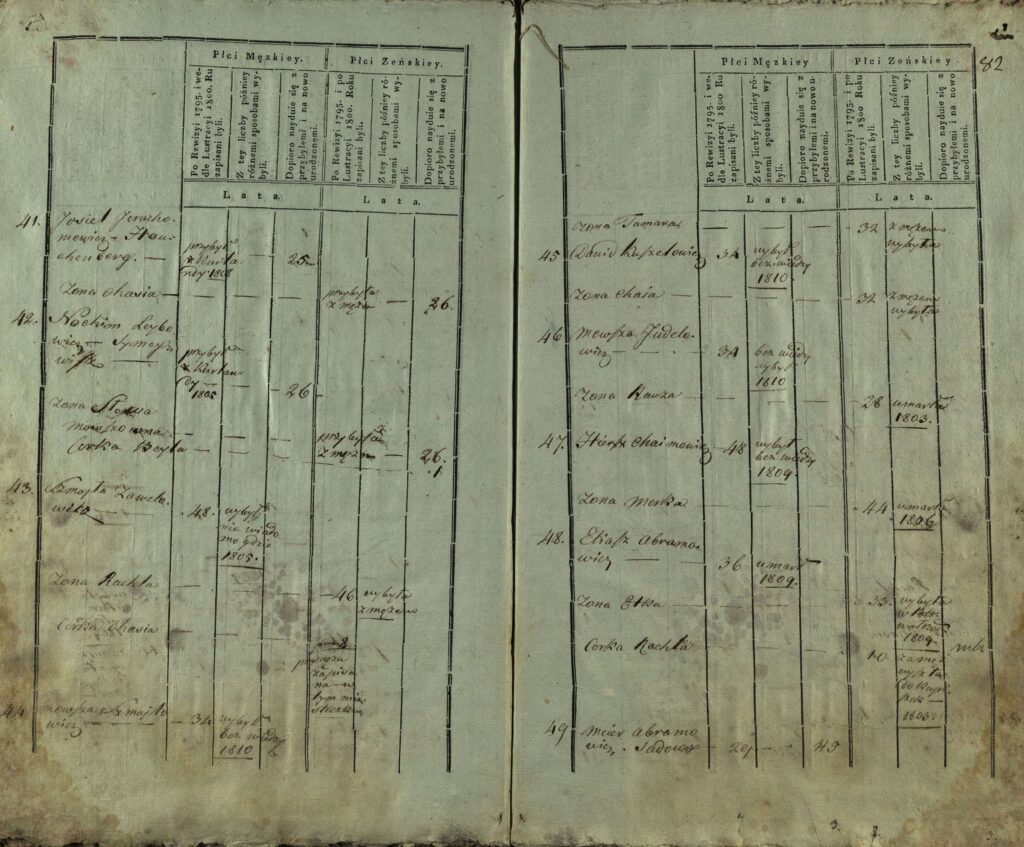 Płci Męzkiey. Płci Żeńskiey.
Po Rewizyi 1795. i we-
dle Lustracyi 1800. Ru
zapisani byli.
Z tey liczby późniey
różnemi sposobami wy-
byli.
Dopioro nayduie się z
przybyłemi i na nowo
urodzonemi.
Po Rewizyi 1795. i po
Lustracyi 1800. Roku
zapisani byli.
Z tey liczby późniey ró-
żnemi sposobami wy-
byli.
Dopioro nayduie się z
przybyłemi i na nowo
urodzonemi.
Lata. Lata.
41. Josiel
mowicz
przybył
z Kurla-
ndy 1808 25
Zona Chasia
przybyła
z mężem 26.
42. Nochim Leybo
wicz
przybył
z Kurlan
dy
1805 26
Zona
Mowszowna
przybyła
z mężem 26.
Corka Beyla 1
43. Szmojła
48. wybył
nie wiado
mo gdzie
1805.
Zona Rochla
46 wybyła
z mężem
Corka Chasia
8
zapisa
na w
tym mia
steczku
44. Mowsza Szmojło
wicz 34 wybył
bez wiedzy
1810
82
Płci Męzkiey Płci Żeńskiey
Po Rewizyi 1795. i we-
dle Lustracyi 1800. Ru
zapisani byli.
Z tey liczby późniey ró-
żnemi sposobami wy-
byli.
Dopioro nayduie się z
przybyłemi i na nowo u-
rodzonemi.
Po Rewizyi 1795. i po
Lustracyi 1800 Roku
zapisani byli.
Z tey liczby późniey
różnemi sposobami wy-
byli.
Dopioro nayduie się z
przybyłemi i na nowo
urodzonemi.
Lata. Lata.
Zona Tamara 32 z mężem
wybyła
45 Dawid 34 wybył
bez wiedzy
1810
Zona Chaia 32 z mężem
wybyła
46 Mowsza Judelo-
wicz 34 bez wiedzy
wybył
1810
Zona 28 umarła
1803.
47. Hiersz Chaimowicz 48 wybył
bez wiedzy
1809.
Zona Merka 44 umarła
1806
48. Eliasz Abramo-
wicz 36 umarł
1809.
Zona Etka 33. wybyła
1809.
Corka Rochla 10 za mąż
wyszła
do
1803.
49 Meier Abramo
wicz 29 45